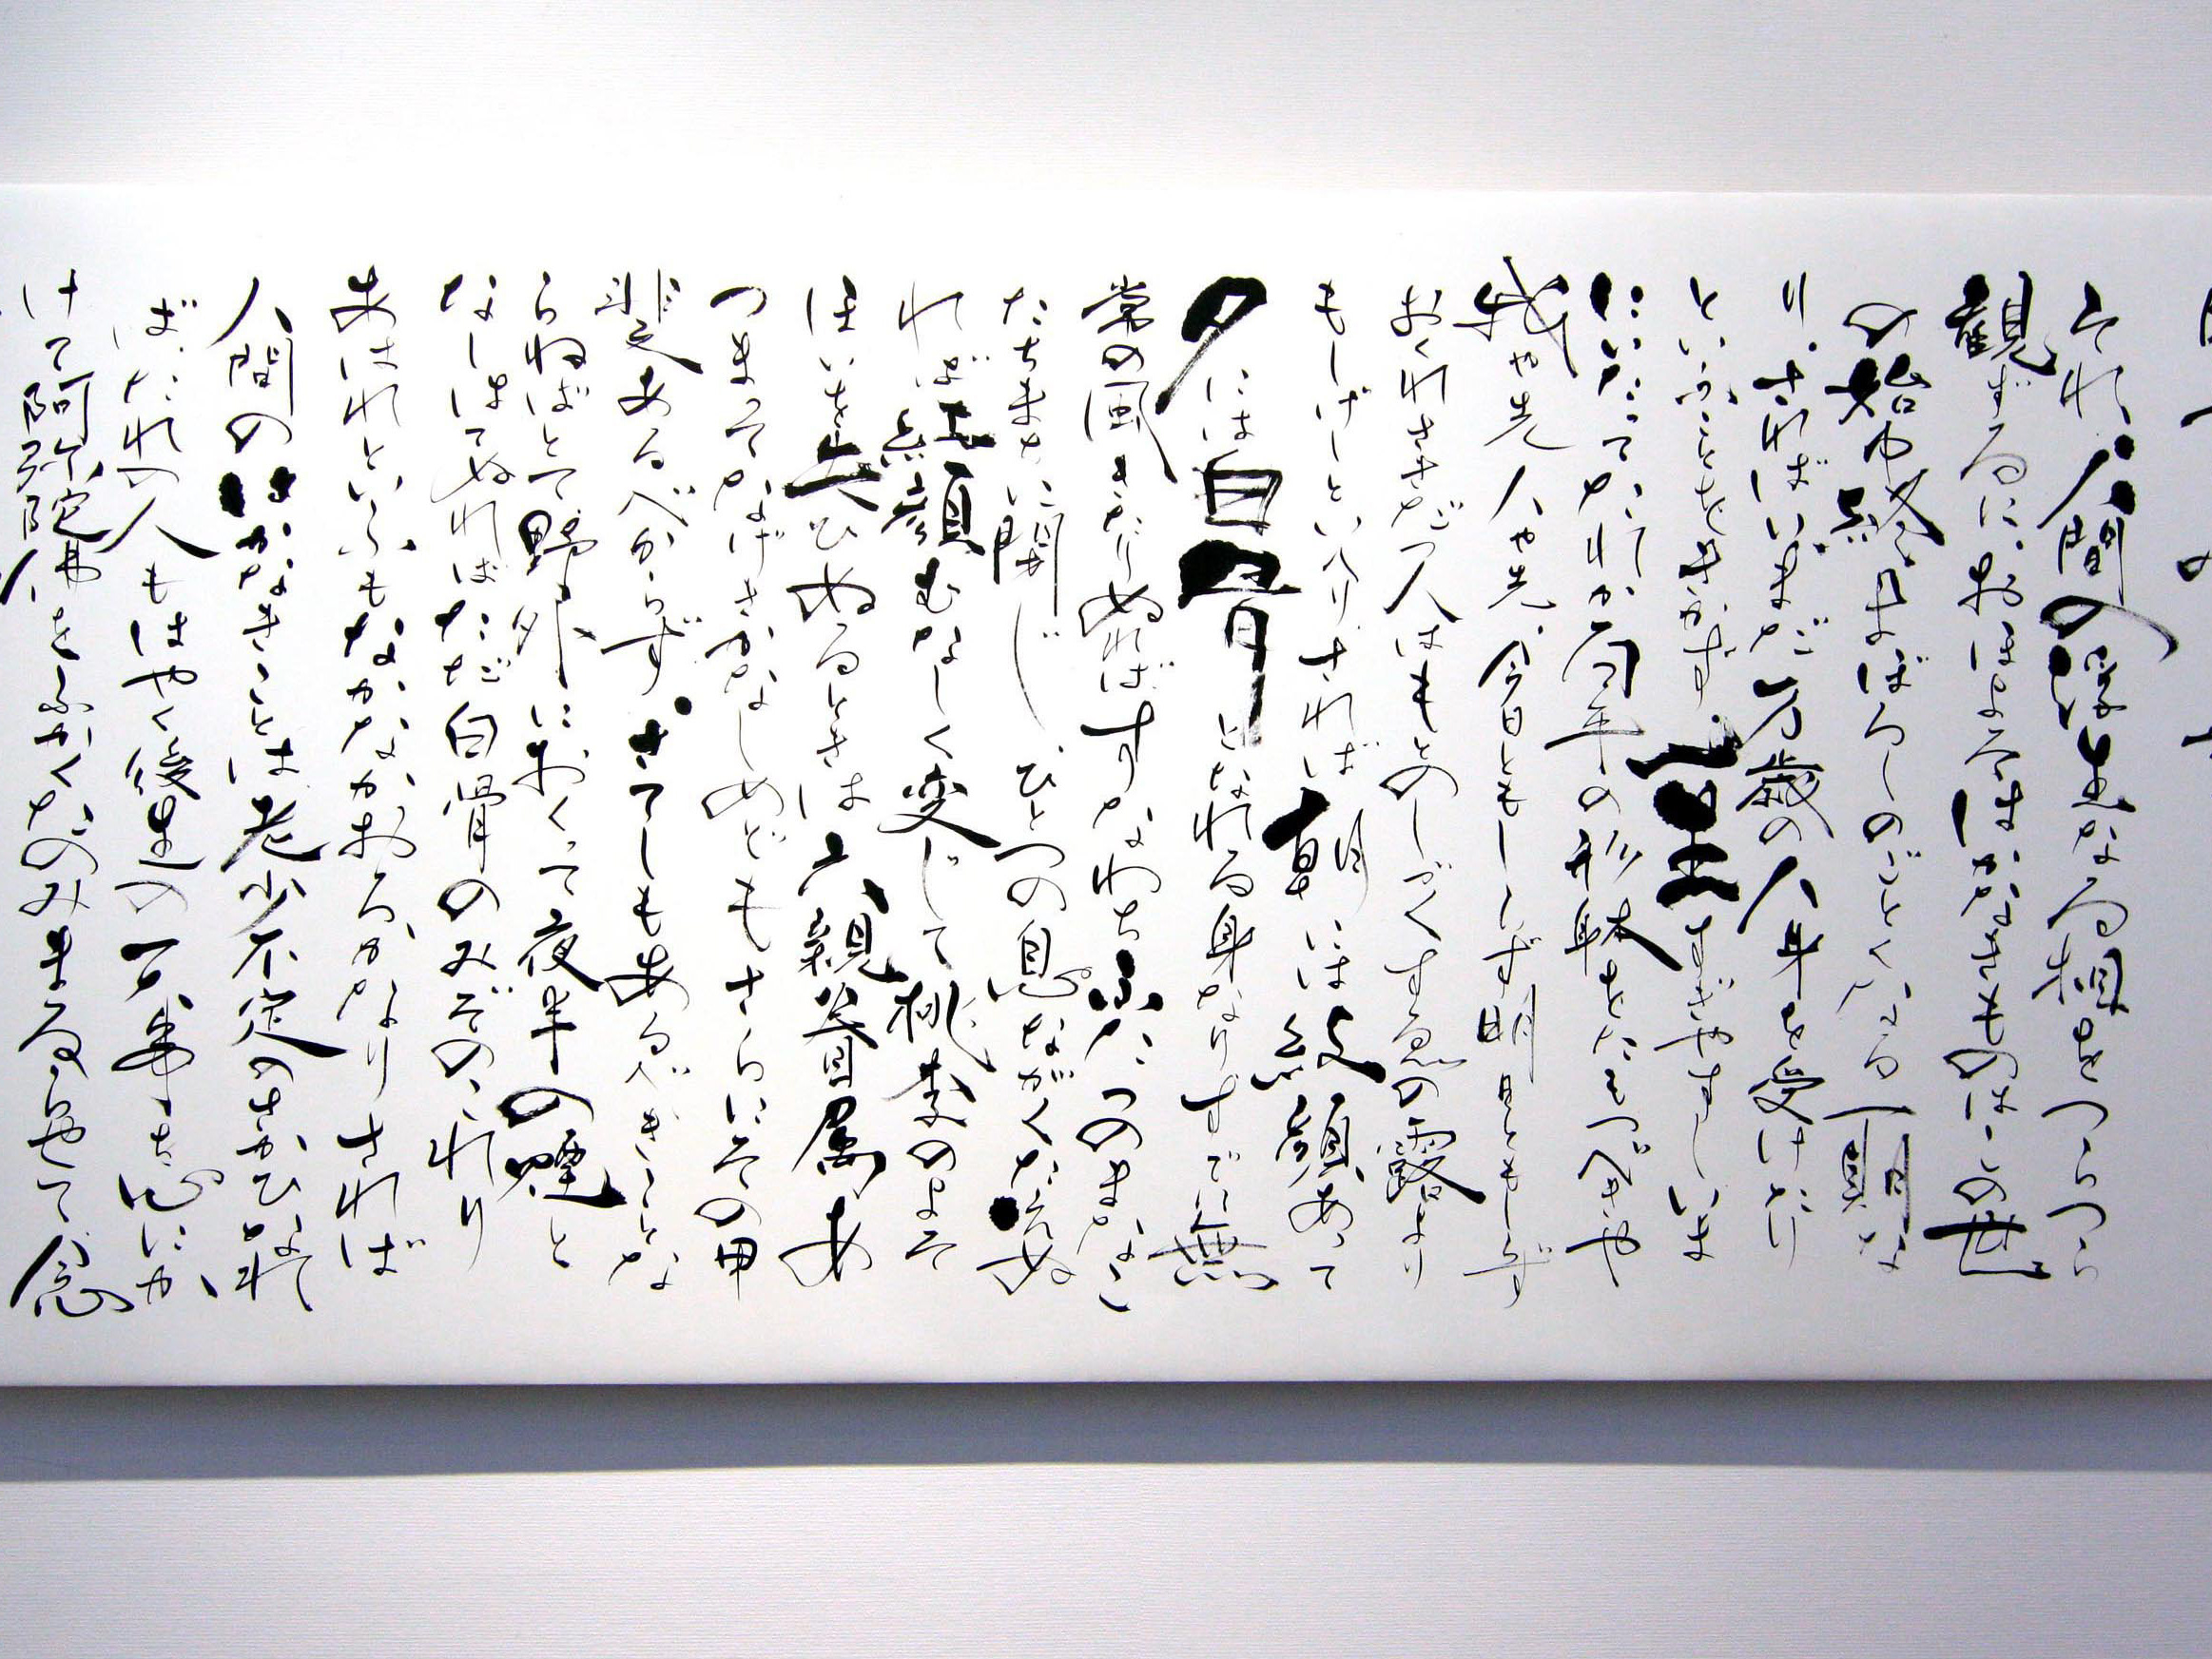 それ、人間の浮生なる相をつらつら
観ずるに、おほよそはかなきものはこの世
の始中終まぼろしのごとくなる一期な
り、さればいまだ万歳の人身を受けたり
といふことをきかず、一生すぎやすし、いま
にいたってたれか百年の形体をたもつべきや
我や先、人や先、今日ともしらず明日ともしらず
おくれさきだつ人はもとのしづくすゑの露より
もしげしといへり、されば朝には紅顔あって
夕には白骨となれる身なりすでに無
常の風きたりぬればすなわちふたつのまなこ
たちまちに閉じ、ひとつの息ながくたえぬ
れば紅顔むなしく変じて桃李のよそ
ほいを失ひぬるときは六親眷属あ
つまりてなげきかなしめどもさらにその甲
斐あるべからず。さてしもあるべきことな
らねばとて野外におくって夜半の煙と
なしはてぬればただ白骨のみぞのこれり
あはれといふもなかなかおろかなりされば
人間のはかなきことは老少不定のさかひなれ
ば、たれの人もはやく後生の一大事を心にか
けて阿弥陀仏をふかくたのみまゐらせて念